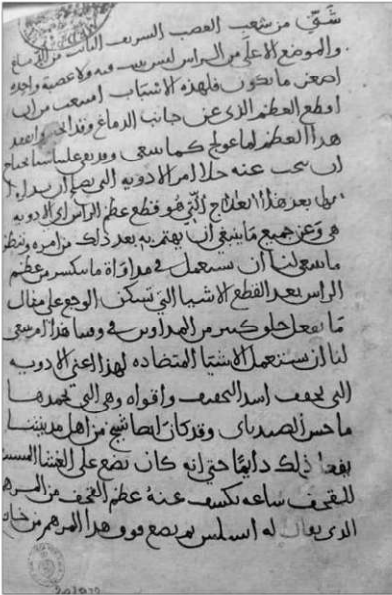 شيّ من شعب العصب الشريف النابت من الدماغ
والموضع الأعلى من الراس ليس ينبت فيه ولا عصبة واحده
اصغر ما يكون فلهذه الاسباب امتنعت من ان
اقطع العظم الذي عن جانب الدماغ وقد
هذا العظم لما عولج كما ينبغي وقد بقي علينا مما يحتاج
ان نبحث عنه خلا امر الادويه التي يصلح ان
بها بعد هذا العلاج الّتي هو قطع عظم الراس اي الادويه
هي وعن جميع ما ينبغي ان يهتم به بعد ذلك من امره وننظر
ما ينبغي لنا ان نستعمل في مداواة ما ينكسر من عظم
الراس بعد القطع الاشيا التي تسكن الوجع على مثال
ما يفعل خلق كثير من المداوين في وقتنا هذا ام ينبغي
لنا ان نستعمل الاشيا المتضاده لهذا اعني الادويه
التي تجفف اشد التجفيف واقواه وهي التي يحمدها
ماحس الصيدناني وقد كان ايضا شيخ من اهل مدينتنا
يفعل ذلك دايمًا حتى انه كان يضع على الغشا
للقحف ساعه يكشف عنهُ عظم القحف من المرهم
الذي يقال له اسلس ثم يضع فوق هذا المرهم من خارج